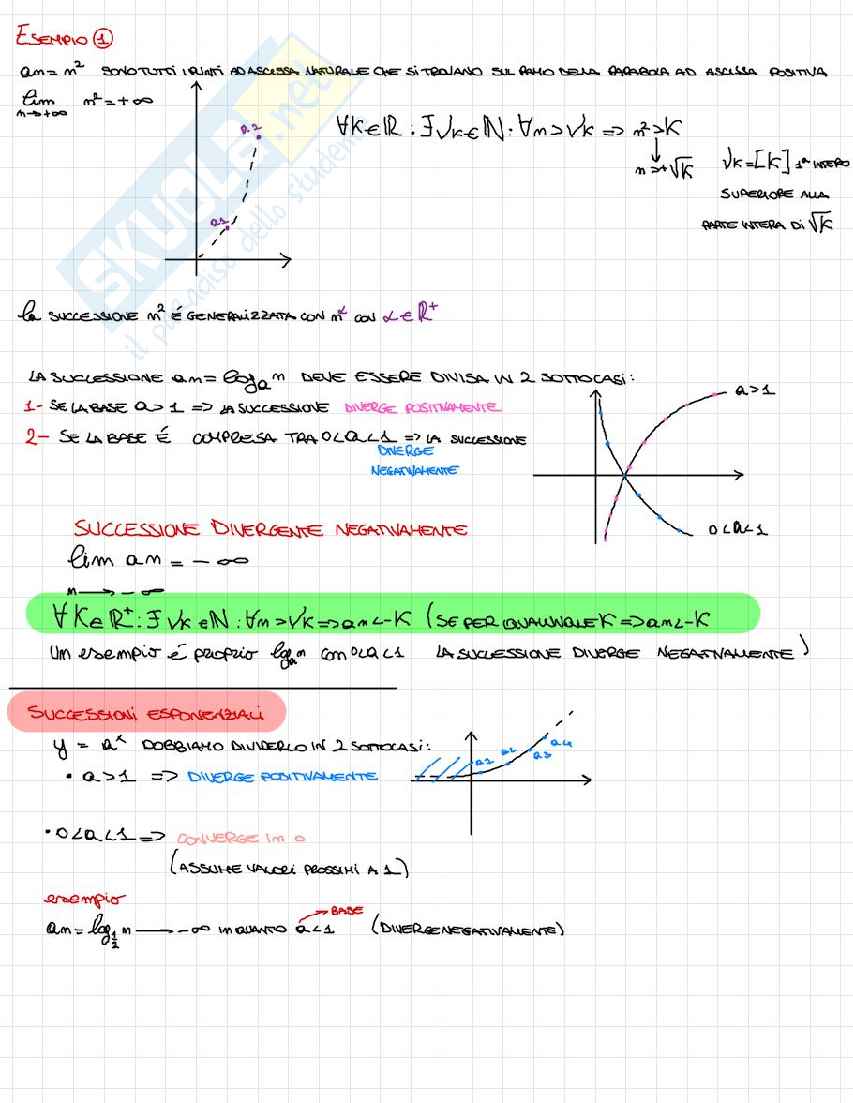 ESEMPIO ①
an = n² SONO TUTTI I PUNTI AD ASCISSA NATURALE CHE SI TROVANO SUL RAMO DELLA PARABOLA AD ASCISSA POSITIVA
lim n² = +∞
n→+∞
∀K∈ℝ : ∃νk∈ℕ : ∀n>νk => n²>K
n>+√K
νK = [K] 1° INTERO
SUPERIORE ALLA
PARTE INTERA DI √K
a2
a1
SKUOLA.net
il paradiso dello studente
la SUCCESSIONE n² É GENERALIZZATA CON n^α CON α∈ℝ⁺
LA SUCCESSIONE an = log_a n DEVE ESSERE DIVISA IN 2 SOTTOCASI:
1- SE LA BASE a>1 => LA SUCCESSIONE DIVERGE POSITIVAMENTE
2- SE LA BASE É COMPRESA TRA 0<a<1 => LA SUCCESSIONE
DIVERGE
NEGATIVAMENTE
a>1
0<a<1
SUCCESSIONE DIVERGENTE NEGATIVAMENTE
lim an = -∞
n→-∞
∀K∈ℝ⁺: ∃νk∈ℕ : ∀n>νk => an<-K (SE PER QUALUNQUE K => an<-K
Un esempio é proprio log_a n con 0<a<1 LA SUCCESSIONE DIVERGE NEGATIVAMENTE)
SUCCESSIONI ESPONENZIALI
y = a^x DOBBIAMO DIVIDERLO IN 2 SOTTOCASI:
• a>1 => DIVERGE POSITIVAMENTE
a1 a2 a3 a4
• 0<a<1 => CONVERGE IN 0
(ASSUME VALORI PROSSIMI A 1)
esempio
an = log_½ n → -∞ IN QUANTO a<1 (DIVERGE NEGATIVAMENTE)
BASE